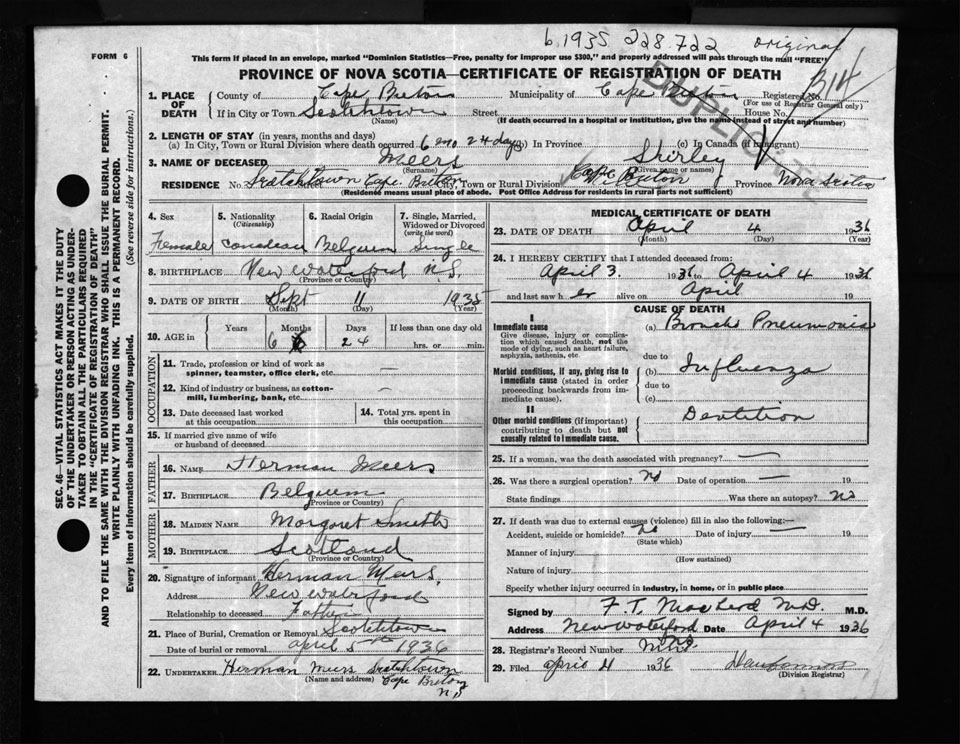 b.1935 228.722 original
FORM 6
This form if placed in an envelope, marked "Dominion Statistics—Free, penalty for improper use $300," and properly addressed will pass through the mail "FREE"
PROVINCE OF NOVA SCOTIA—CERTIFICATE OF REGISTRATION OF DEATH
DUPLICATE
314
1. PLACE OF DEATH
County of Cape Breton Municipality of Cape Breton Registered No.
(For use of Registrar General only)
If in City or Town Scotchtown Street House No.
(Name) (If death occurred in a hospital or institution, give the name instead of street and number)
2. LENGTH OF STAY (in years, months and days)
(a) In City, Town or Rural Division where death occurred 6 mo 24 days (b) In Province (c) In Canada (if immigrant)
3. NAME OF DECEASED Meers Shirley
(Surname) (Given name or names)
RESIDENCE No. Scotchtown Cape Breton City, Town or Rural Division Cape Breton Province Nova Scotia
(Residence means usual place of abode. Post Office Address for residents in rural parts not sufficient)
4. Sex
Female
5. Nationality (Citizenship)
Canadian
6. Racial Origin
Belgium
7. Single, Married, Widowed or Divorced (write the word)
Single
8. BIRTHPLACE New Waterford N.S.
(Province or Country)
9. DATE OF BIRTH Sept 11 1935
(Month) (Day) (Year)
10. AGE in
Years Months Days If less than one day old
6 24 hrs. or min.
OCCUPATION
11. Trade, profession or kind of work as
spinner, teamster, office clerk, etc. —
12. Kind of industry or business, as cotton-
mill, lumbering, bank, etc. —
13. Date deceased last worked
at this occupation
14. Total yrs. spent in
this occupation
15. If married give name of wife
or husband of deceased
FATHER
16. NAME Herman Meers
17. BIRTHPLACE Belgium
(Province or Country)
MOTHER
18. MAIDEN NAME Margaret Smith
19. BIRTHPLACE Scotland
(Province or Country)
20. Signature of informant Herman Meers,
Address New Waterford
Relationship to deceased Father
21. Place of Burial, Cremation or Removal Scotchtown
Date of burial or removal april 5th 1936
22. UNDERTAKER Herman Meers Scotchtown
(Name and address) Cape Breton
N S
MEDICAL CERTIFICATE OF DEATH
23. DATE OF DEATH April 4 1936
(Month) (Day) (Year)
24. I HEREBY CERTIFY that I attended deceased from:
April 3. 1936 to April 4 1936
and last saw her alive on April 19
CAUSE OF DEATH
I
Immediate cause
Give disease, injury or complica-
tion which caused death, not the
mode of dying, such as heart failure,
asphyxia, asthenia, etc
(a) Broncho Pneumonia
due to
Morbid conditions, if any, giving rise to
immediate cause (stated in order
proceeding backwards from im-
mediate cause).
(b) Influenza
due to
(c)
II
Other morbid conditions (if important)
contributing to death but not
causally related to immediate cause.
Dentition
25. If a woman, was the death associated with pregnancy? —
26. Was there a surgical operation? No Date of operation — 19
State findings Was there an autopsy? No
27. If death was due to external causes (violence) fill in also the following:—
Accident, suicide or homicide? No Date of injury 19
(State which)
Manner of injury
(How sustained)
Nature of injury
Specify whether injury occurred in industry, in home, or in public place
Signed by F. T. MacLeod M.D. M.D.
Address New Waterford Date April 4 1936
28. Registrar's Record Number
29. Filed april 4 1936
(Division Registrar)
SEC. 46—VITAL STATISTICS ACT MAKES IT THE DUTY
OF THE UNDERTAKER OR PERSON ACTING AS UNDER-
TAKER TO OBTAIN ALL THE PARTICULARS REQUIRED
IN THE "CERTIFICATE OF REGISTRATION OF DEATH"
AND TO FILE THE SAME WITH THE DIVISION REGISTRAR WHO SHALL ISSUE THE BURIAL PERMIT.
WRITE PLAINLY WITH UNFADING INK. THIS IS A PERMANENT RECORD.
Every item of information should be carefully supplied. (See reverse side for instructions.)